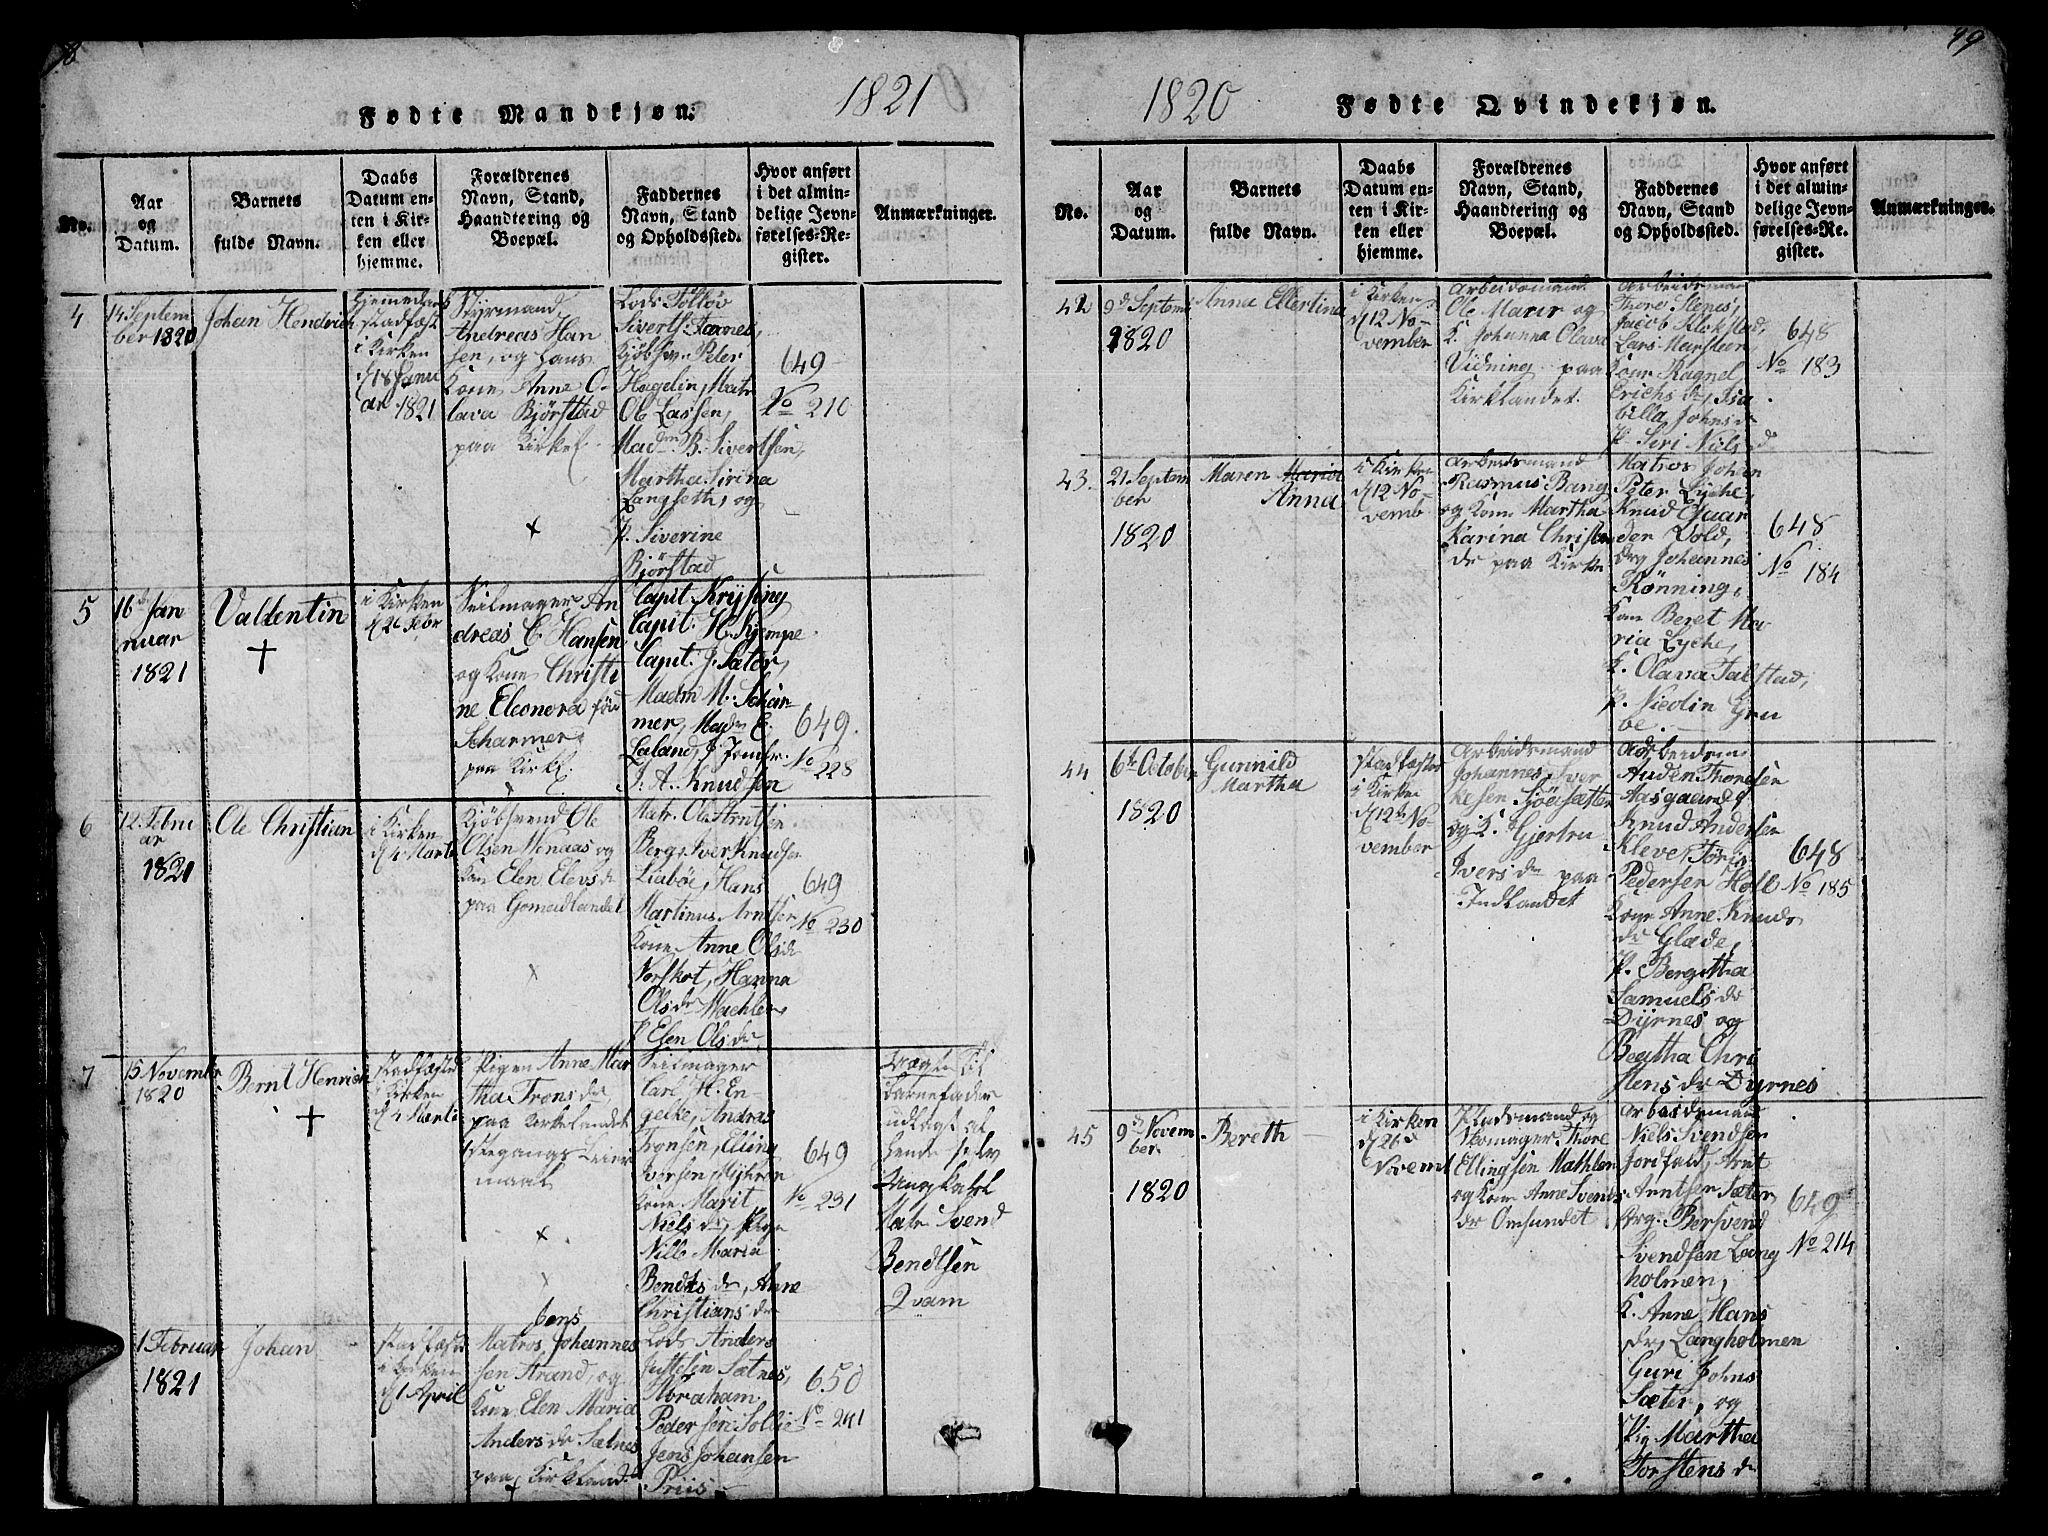 49
Fødte Mandkjøn.
1821
No.
Aar og Datum.
Barnets fulde Navn.
Daabs Datum enten i Kirken eller hjemme.
Forældrenes Navn, Stand, Haandtering og Boepæl.
Faddernes Navn, Stand og Opholdssted.
Hvor anført i det almindelige Jevnførelses-Register.
Anmærkninger.
4
14 Septem
ber 1820
Johan Hendrich
stadfæst
i Kirken
d 18 Janu
ar 1821
Styrmand
Andreas Han
sen, og hans
Kone Anne O-
lava Bjørstad
paa Kirkel
Lods Tolløv
Sivertsen
Peter
Hagelin, Matr
Ole Lassen,
Madm B. Sivertsen,
Martha Sirina
Langseth, og
P. Siverine
Bjørstad
649
No 210
5
16 Jan
nuar
1821
Valdentin
i Kirken
d 26 Febr
Seilmager An
dreas C. Hansen
og Kone Christi
ne Eleonora fød
Scharmer
paa Kirkl
Capit. Krysing
Capit. H. Kjempe
Capit. J. Sater,
Madm M. Schar-
mer, Mad
Laland, J
J. A. Knudsen
649.
No 228
6
12. Febru
ar
1821
Ole Christian
i Kirken
d 4 Marti
Ole
Olsen Vinaas og
Kone Elen Elevs dr
paa Gomadlandet
Matr. Ole
Berg, Iver Knudsen
Liabøe, Hans
Martinus Arntsen
Kone Anne Ols dr
Vorskot, Hanna
Ols dr
P Elen Ols dr
649
No 230
7
15 November
1820
Bernt Henrich
stadfæstet
i Kirken
d 4 Marti
Pigen Anne Mar
tha Trons dr
paa Kirkelandet
1ste gangs Leier
maal
Seilmager
Carl H. En-
gelke, Andras
Tronsen, Elling
Iversen
Kone Marit
Niels dr, Pige
Nille Maria
Bendts dr, Anne
Christians dr
649
No 231
Barnefader
udlagt af
hende selv
Ungkarl
Matr Svend
Bendtsen
Qvam
1 Februar
1821
Johan
stadfæstet
i Kirken
d 1 April
Jens
Matros Johannes
sen Strand, og
Kone Elen Maria
Anders dr Sætnes
paa Kirkland
Lods Anders
Sætnes,
Abraham
Pedersen Sollie
Jens Johansen
Priis
650
No 241
1820
Fødte Qvindekjøn.
No.
Aar og Datum.
Barnets fulde Navn.
Daabs Datum enten i Kirken eller hjemme.
Forældrenes Navn, Stand, Haandtering og Boepæl.
Faddernes Navn, Stand og Opholdssted.
Hvor anført i det almindelige Jevnførelses-Register.
Anmærkninger.
42
9d Septemb
1820
Anna Ellertina
i Kirken
d 12 No-
vember
Arbeidsmand
Ole Maur og
K. Johanna Olava
Vidning paa
Kirklandet.
Arbeidsman
Thore Stenes,
Jacob Klokstad,
Lars Marsteen,
Kone Ragnel
Erichs dr, Isa
billa Johns dr
P. Siri Niels d
648
No 183
43.
21 Septem
ber
1820
Maren
Anna
i Kirken
d 12 No-
vemb
Arbeidsmand
Rasmus Bang
og Kone Martha
Karina Christen
dr paa Kirke
Matros Johan
Peter Lyche,
Knud Gaar
den Vold,
Drg Johannes
Rønning,
Kone Beret Ma-
ria Lyche,
K. Olava Talstad,
P. Nicolin Gru
be.
648
No 184
44
6te October
1820
Gunnild
Martha
stadfæstet
i Kirken
d 12 No-
vember
Arbeidsmand
Johannes Iver
og K. Gjertru
Ivers dr paa
Indlandet
Arbeidsm
Auden Thoresen
Aasgaund,
Knud Andersen
Kleve,
Pedersen Holl
Kone Anne Knuds
dr Glade,
P. Bergitha
Samuels dr
Dyrnes og
Beatha Chri
stens dr Dyrnes
648
No 185
45
9de Novem
ber
1820
Bereth
i Kirken
d 26
Novemb
Pladsmand og
Skomager Thore
Ellingsen Mæhlen
og Kone Anne Svends
dr Omsundet
Arbeidsmand
Niels Svendsen
Jordfald, Arnt
Arntsen Sæter
Drg. Bersvend
Svendsen Lang
holmen,
K. Anne Hans
dr, Langholmen
Guri Johns
Sæter, og
Pig Martha
Torstens dr
649
No 214